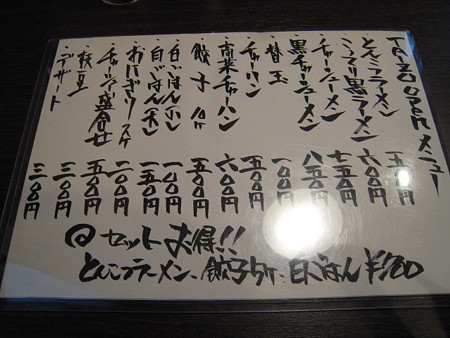 TAIZO OPEN メニュー
とんこつラーメン 五〇〇円
こってり黒ラーメン 六〇〇円
チャーシューメン 七五〇円
黒チャーシューメン 八五〇円
替玉 一〇〇円
チャーハン 五〇〇円
高菜チャーハン 六〇〇円
餃子 10ヶ 五〇〇円
白ごはん(小) 一〇〇円
白ごはん(大) 一五〇円
おにぎり 2ヶ 二〇〇円
チャーシュー盛合せ 五〇〇円
枝豆 三〇〇円
デザート 三〇〇円
セットお得!!
とんこつラーメン、餃子5ケ、白ごはん ¥700